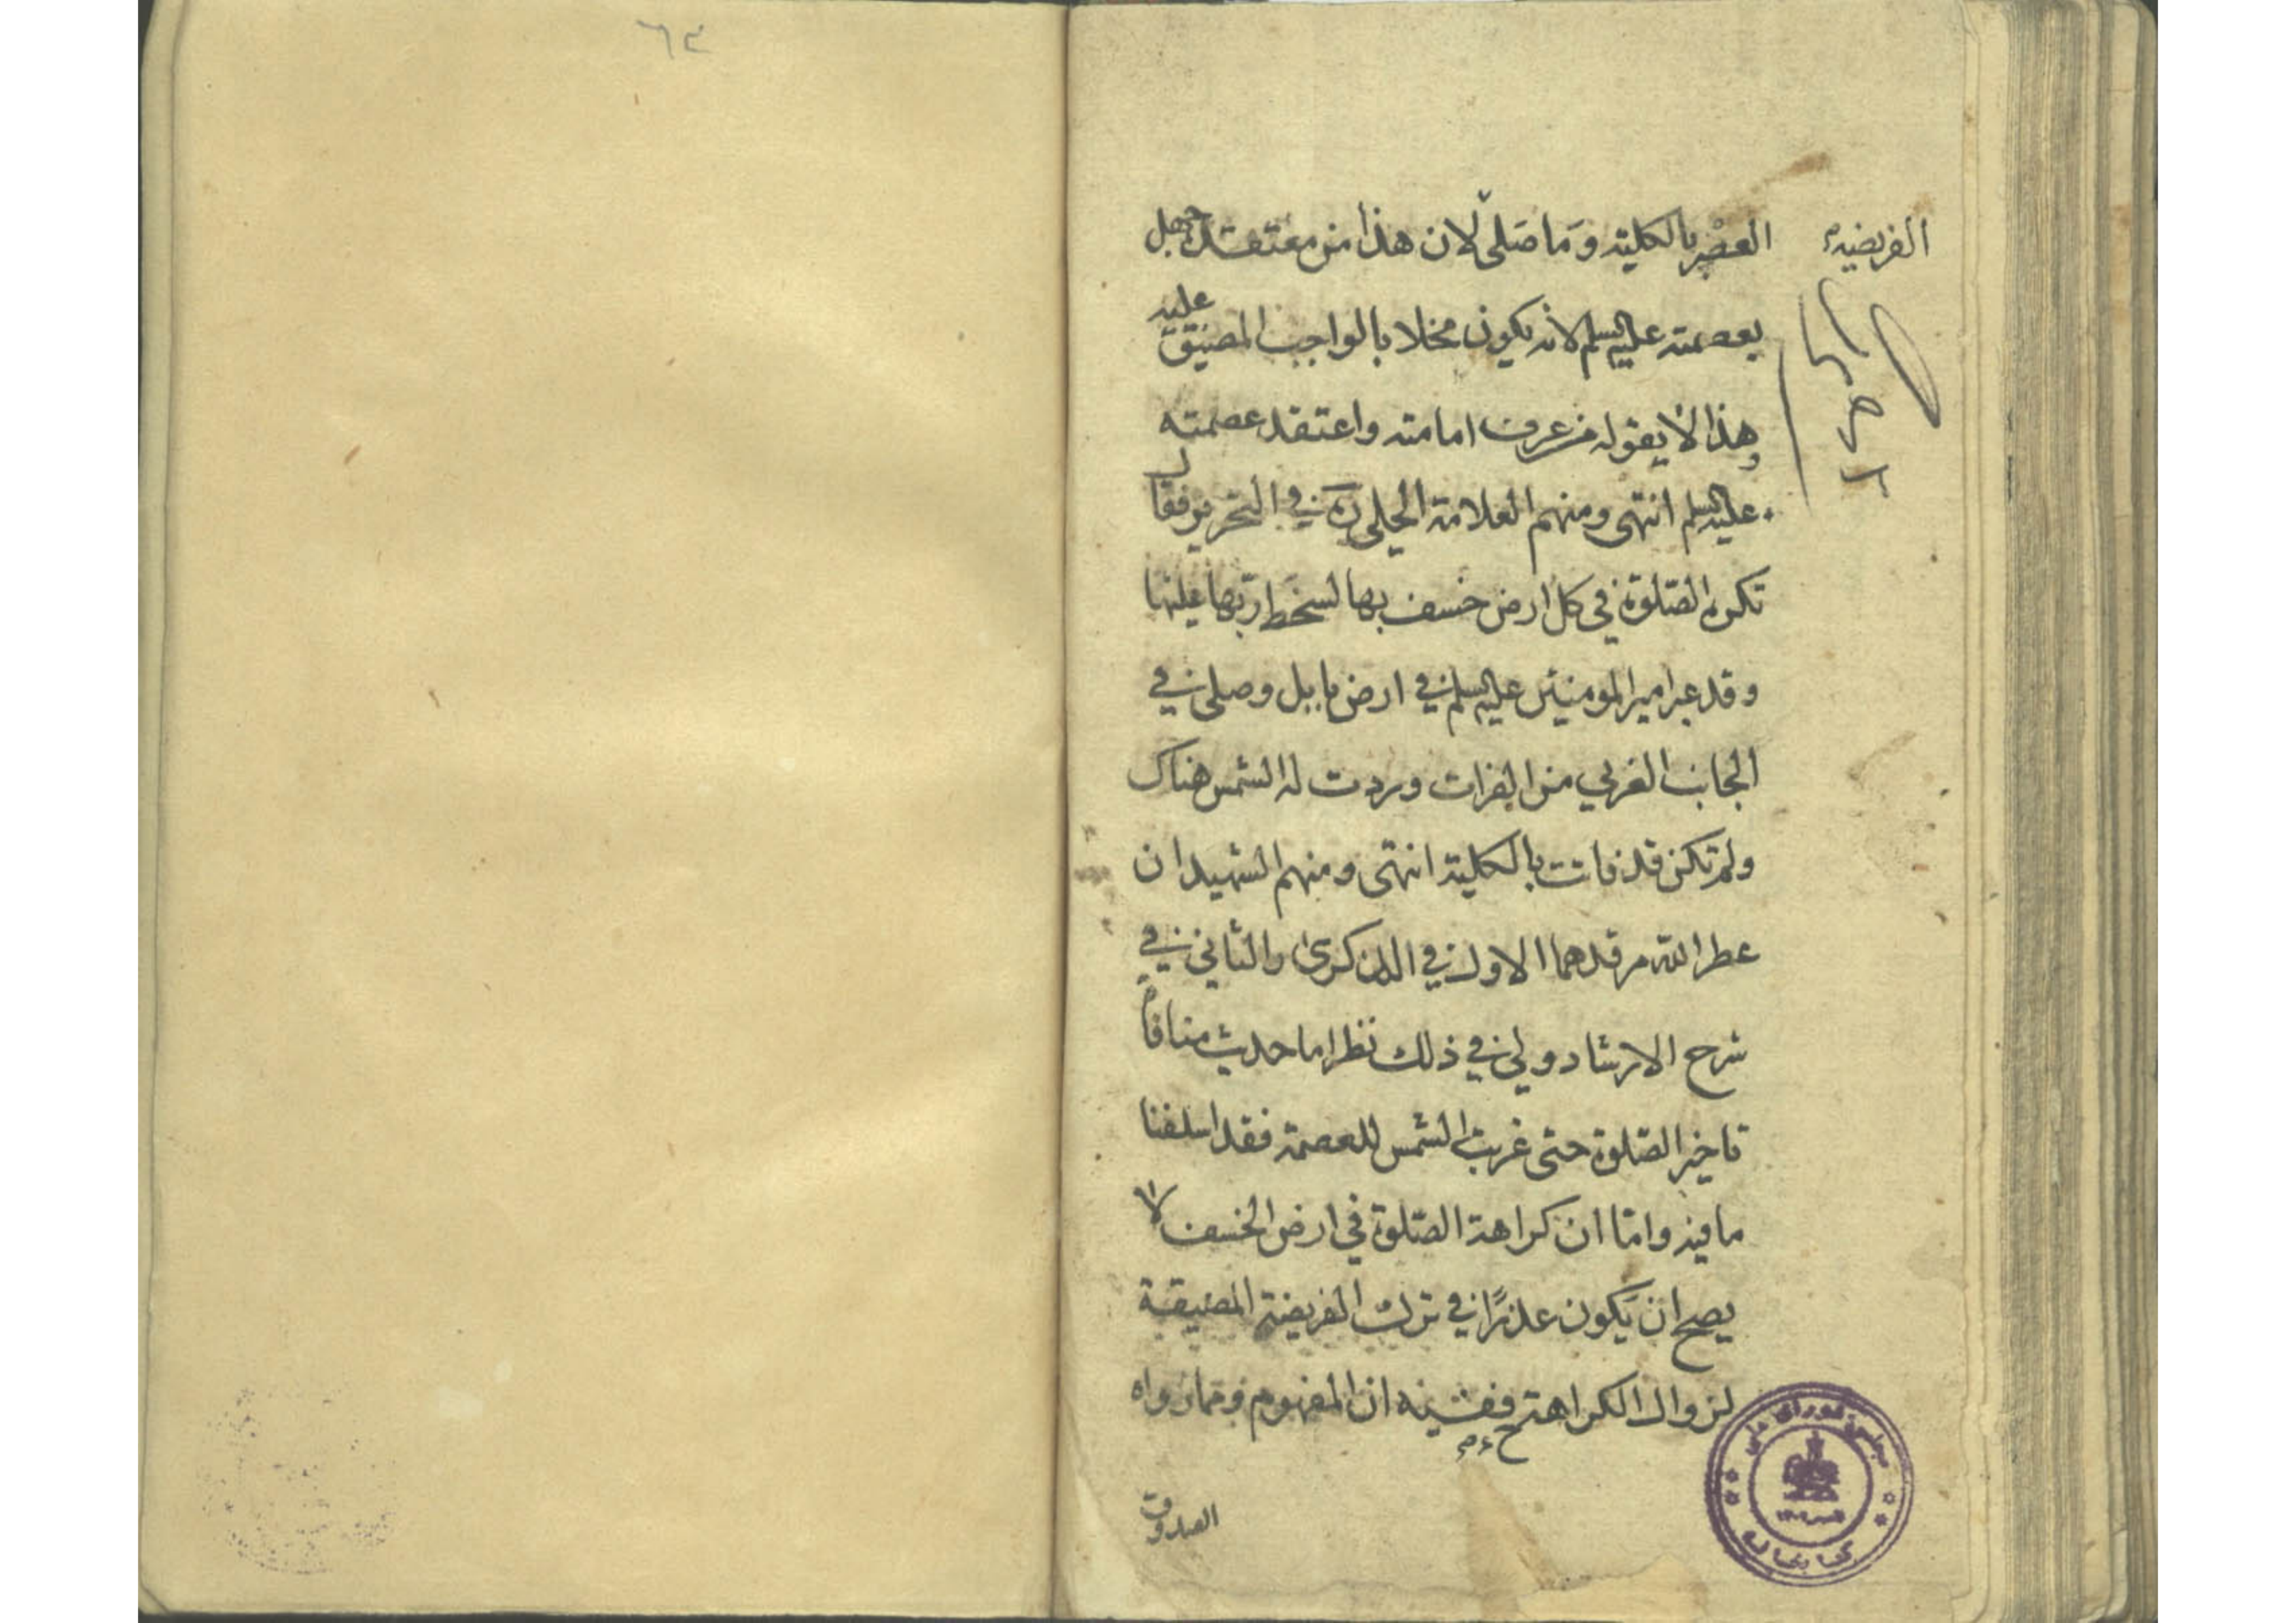 ٦٣
الفريضة
العصر بالكلية وما صلى لان هذا من معتقده جهل
بعصمته عليه السلم لانه يكون مخلا بالواجب المضيق عليه
وهذا لا يقوله من عرف امامته واعتقد عصمته
عليه السلم انتهى ومنهم العلامة الحلي ره في التحرير فقال
تكره الصلوة في كل ارض خسف بها لسخط ربها عليها
وقد عبر امير المومنين عليه السلم في ارض بابل وصلى في
الجانب الغربي من الفرات وردت له الشمس هناك
ولم تكن قد فاتت بالكلية انتهى ومنهم الشهيدان
عطر الله مرقدهما الاول في الذكرى والثاني في
شرح الارشاد ولي في ذلك نظر اما حديث منافاة
تاخير الصلوة حتى غربت الشمس للعصمة فقد اسلفنا
ما فيه واما ان كراهة الصلوة في ارض الخسف لا
يصح ان يكون عذرًا في ترك الفريضة المضيقة
لزوال الكراهة ح ففيه ان المفهوم مما رواه
الصدوق
مجلس شورای ملی
کتابخانه